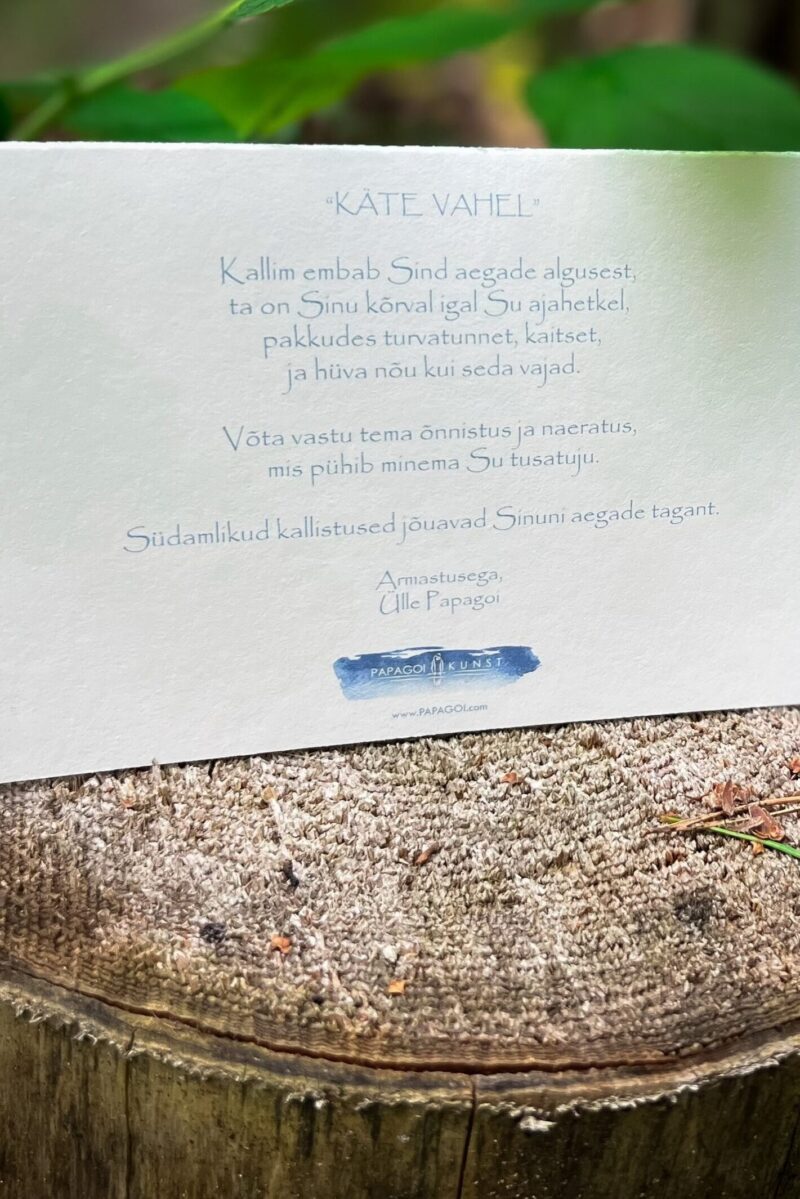 “KÄTE VAHEL”
Kallim embab Sind aegade algusest,
ta on Sinu kõrval igal Su ajahetkel,
pakkudes turvatunnet, kaitset,
ja hüva nõu kui seda vajad.
Võta vastu tema õnnistus ja naeratus,
mis pühib minema Su tusatuju.
Südamlikud kallistused jõuavad Sinuni aegade tagant.
Armastusega,
Ülle Papagoi
PAPAGOI KUNST
www.PAPAGOI.com